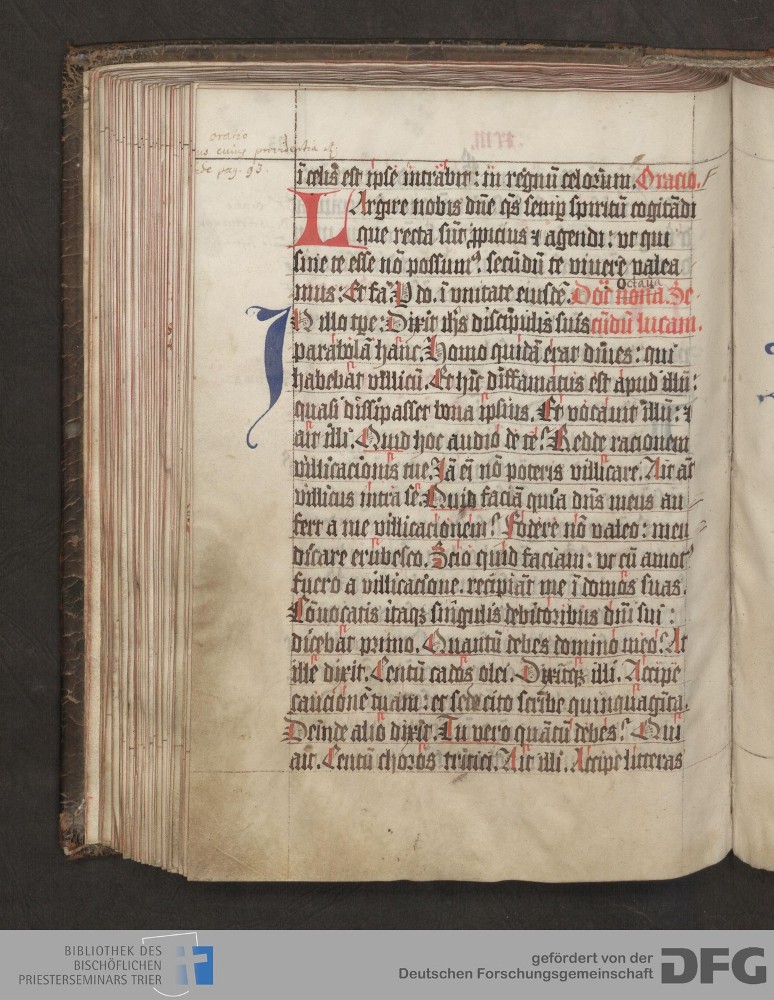 oratio
us cuius providentia et
de pag. 93.
ī celis est ipse intrabit: in regnū celorum. Oracio.
Largire nobis dn̄e qs̄ semp spiritū cogitādi
que recta sūt ꝓpicius ⁊ agendi: vt qui
sine te esse nō possumꝰ. secūdū te viuere valea
mus: Et fa. P do. ī vnitate eiusdē. Doī nona. Se
octaua
IN illo tꝑe: Dixit ihs discipulis suis cūdū lucam.
parabolā hanc. Homo quidā erat diues: qui
habebat villicū. Et hic diffamatus est apud illū:
quasi dissipasset bona ipsius. Et vocauit illū: ⁊
ait illi. Quid hoc audio de te? Redde racionem
villicacionis tue. Jā eī nō poteris villicare. Ait āt
villicus intra se. Quid faciā quia dn̄s meus au
fert a me villicacionem? Fodere nō valeo: men
dicare erubesco. Scio quid faciam: vt cū amotꝰ
fuero a villicacione. recipiāt me ī domos suas.
Cōuocatis itaqꝫ singulis debitoribus dn̄i sui:
dicebat primo. Quantū debes domino meo? At
ille dixit. Centū cados olei. Dixitqꝫ illi. Accipe
caucionē tuam: et sede cito scribe quinquaginta.
Deinde alio dixit. Tu vero quātū debes? Qui
ait. Centū choros tritici. Ait illi. Accipe litteras
BIBLIOTHEK DES
BISCHÖFLICHEN
PRIESTERSEMINARS TRIER
gefördert von der
Deutschen Forschungsgemeinschaft
DFG